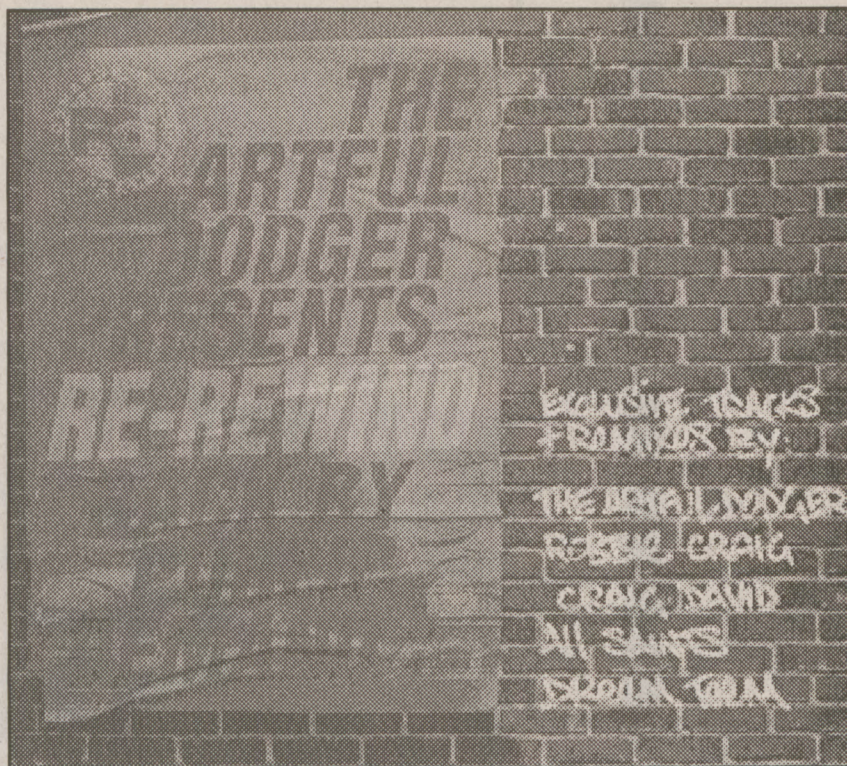 THE
ARTFUL
DODGER
PRESENTS
RE-REWIND
BACK BY
EXCLUSIVE TRACKS
+ REMIXES BY:
THE ARTFUL DODGER
ROBBIE CRAIG
CRAIG DAVID
All SAINTS
DREAM TEAM